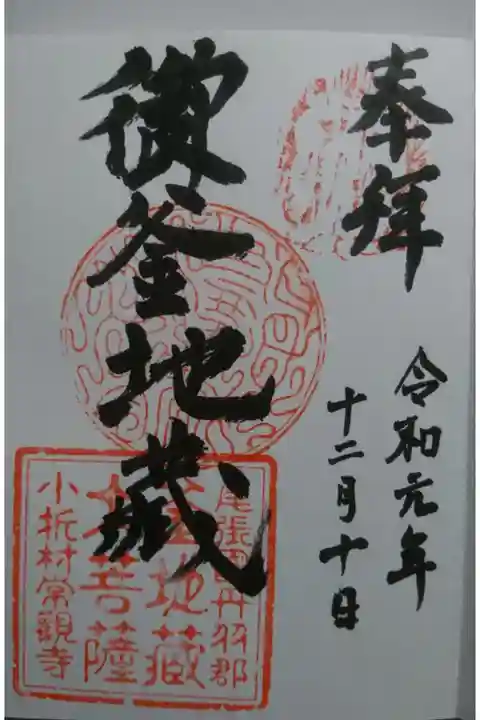 奉拜
令和元年
十二月十日
御釜地蔵
尾張国丹羽郡
釜地蔵
菩薩
小折村常観寺